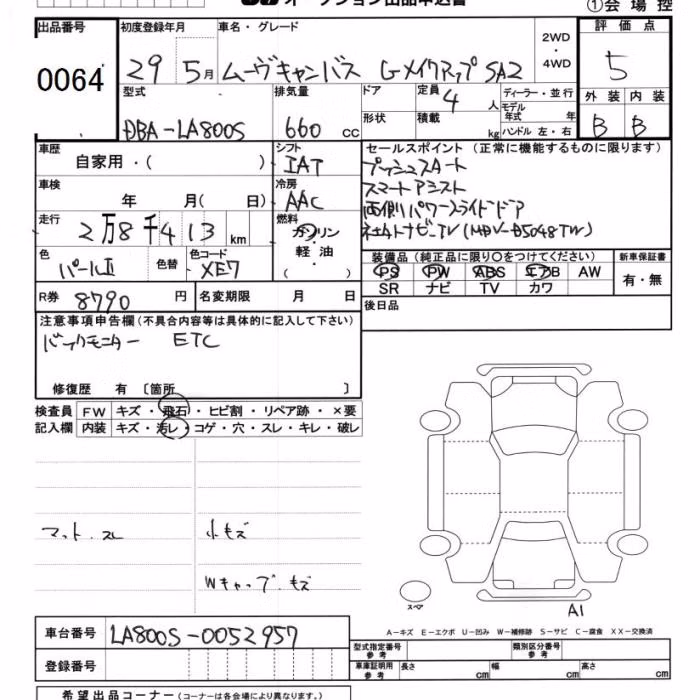 オークション出品申込書
①会場控
出品番号 0064
初度登録年月 29 5月
車名・グレード ムーヴキャンバス GメイクアップSA2
2WD・4WD
評価点 5
外装 内装
B B
型式 DBA-LA800S
排気量 660 cc
ドア
形状
定員 4 人
積載 kg
ディーラー・並行
モデル年式 年
ハンドル 左・右
車歴 自家用・( )
シフト IAT
セールスポイント (正常に機能するものに限ります)
プッシュスタート
スマートアシスト
両側パワースライドドア
車検 年 月( 日)
冷房 AAC
走行 2万8千413 km
燃料 ガソリン 軽油 ( )
色 パールⅡ 色替
色コード XE7
装備品 (純正品に限り○をつけてください)
PS PW ABS エアB AW
SR ナビ TV カワ
新車保証書 有・無
R券 8790 円
名変期限 月 日
後日品
注意事項申告欄 (不具合内容等は具体的に記入して下さい)
バックモニター ETC
修復歴 有 〔箇所 〕
検査員記入欄
FW キズ・飛石・ヒビ割・リペア跡・×要
内装 キズ・汚レ・コゲ・穴・スレ・キレ・破レ
マット.スレ 小キズ
Wキャップ.キズ
スペア
A1
A-キズ E-エクボ U-凹み W-補修跡 S-サビ C-腐食 XX-交換済
車台番号 LA800S-0052957
登録番号
型式指定番号 参考
類別区分番号 参考
車庫証明用 参考 長さ cm 幅 cm 高さ cm
希望出品コーナー (コーナーは各会場により異なります。)